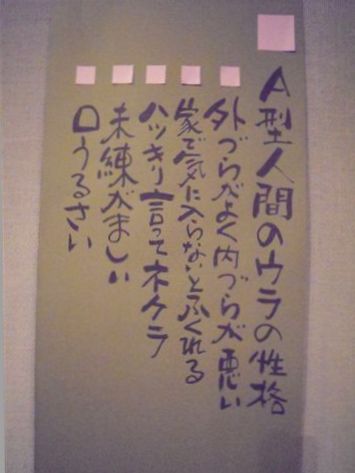 A型人間のウラの性格
外づらがよく内づらが悪い
家で気に入らないとふくれる
ハッキリ言ってネクラ
未練がましい
口うるさい